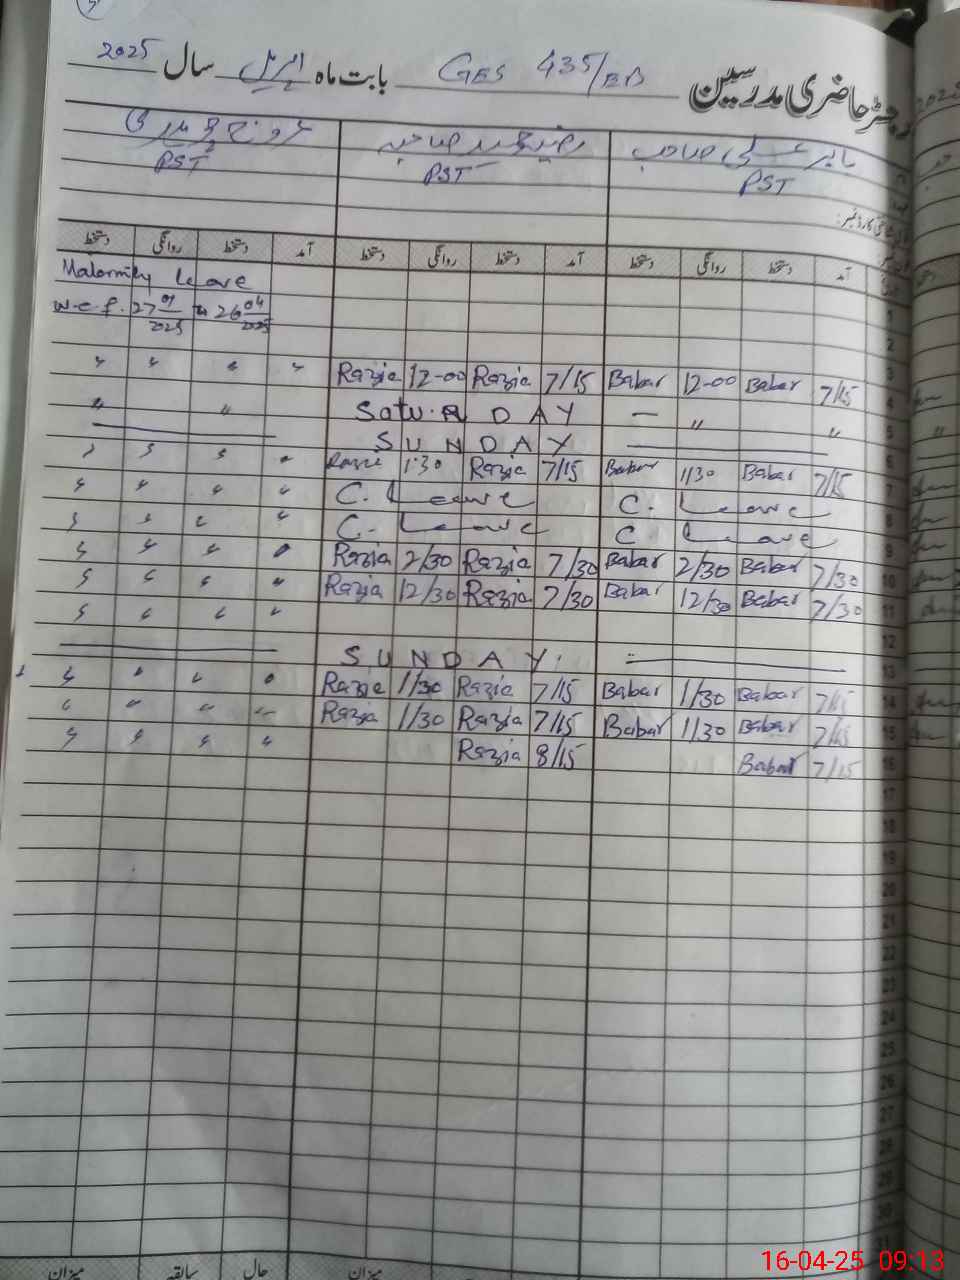 رجسٹر حاضری مدرسین GES 435/EB بابت ماہ اپریل سال 2025
بابر علی صاحب
PST
PST
PST
آمد دستخط روانگی دستخط آمد دستخط روانگی دستخط آمد دستخط روانگی دستخط
1
Maternity Leave
2
w.e.f. 27 01/2025 to 26 04/2025
3
4 Razia 12-00 Razia 7/15 Babar 12-00 Babar 7/15
5 " " SATURDAY — " "
SUNDAY
6
7 Razia 1:30 Razia 7/15 Babar 1/30 Babar 7/15
8 C. Leave C. Leave
9 C. Leave C. Leave
10 Razia 2/30 Razia 7/30 Babar 2/30 Babar 7/30
11 Razia 12/30 Razia 7/30 Babar 12/30 Babar 7/30
12
13 SUNDAY
14 Razia 1/30 Razia 7/15 Babar 1/30 Babar 7/15
15 Razia 1/30 Razia 7/15 Babar 1/30 Babar 7/15
16 Razia 8/15 Babar 7/15
17
18
19
20
21
22
23
24
25
26
27
28
29
30
31
میزان سابقہ حال میزان
16-04-25 09:13